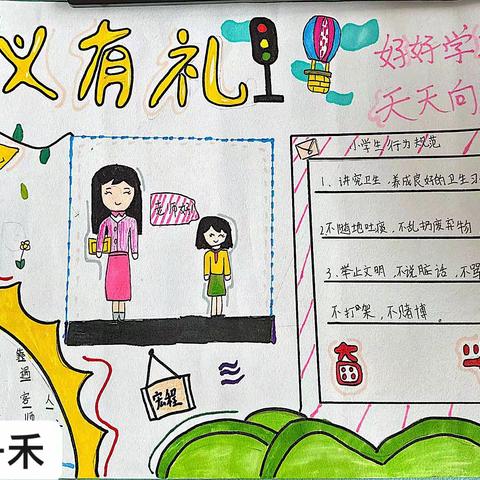 义有礼
好好学
天天向
小学生行为规范
1、讲究卫生，养成良好的卫生习
2不随地吐痰，不乱扔废弃物
3、举止文明，不说脏话，不骂
不打架，不赌博。
老师好！
宏程
禾